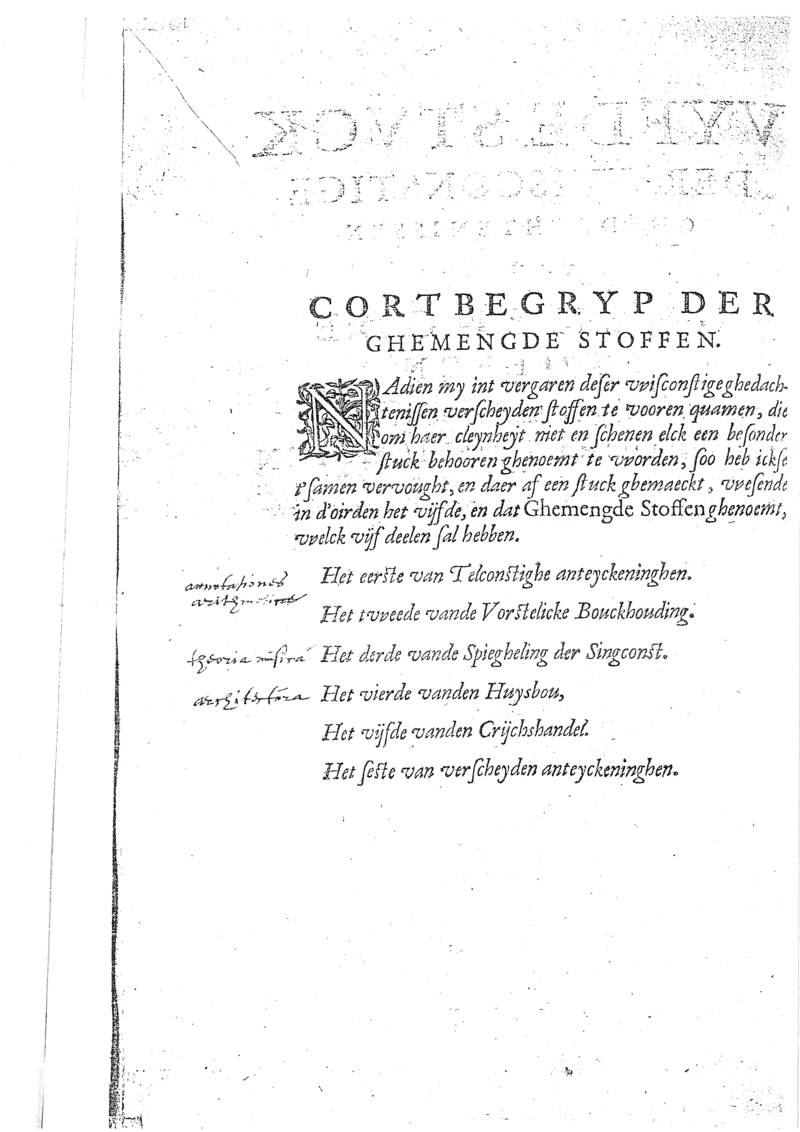 CORTBEGRYP DER
GHEMENGDE STOFFEN.
NAdien my int vergaren deser vvisconstigeghedach-
tenissen verscheyden stoffen te vooren quamen, die
om haer cleynheyt niet en schenen elck een besonder
stuck behooren ghenoemt te vvorden, soo heb ickse
t'samen vervought, en daer af een stuck ghemaeckt, vvesende
in d'oirden het vijfde, en dat Ghemengde Stoffen ghenoemt,
vvelck vijf deelen sal hebben.
annotationes
Het eerste van Telconstighe anteyckeninghen.
Het tvveede vande Vorstelicke Bouckhouding.
theoria musica Het derde vande Spiegheling der Singconst.
architectura Het vierde vanden Huysbou,
Het vijfde vanden Crijchshandel.
Het seste van verscheyden anteyckeninghen.